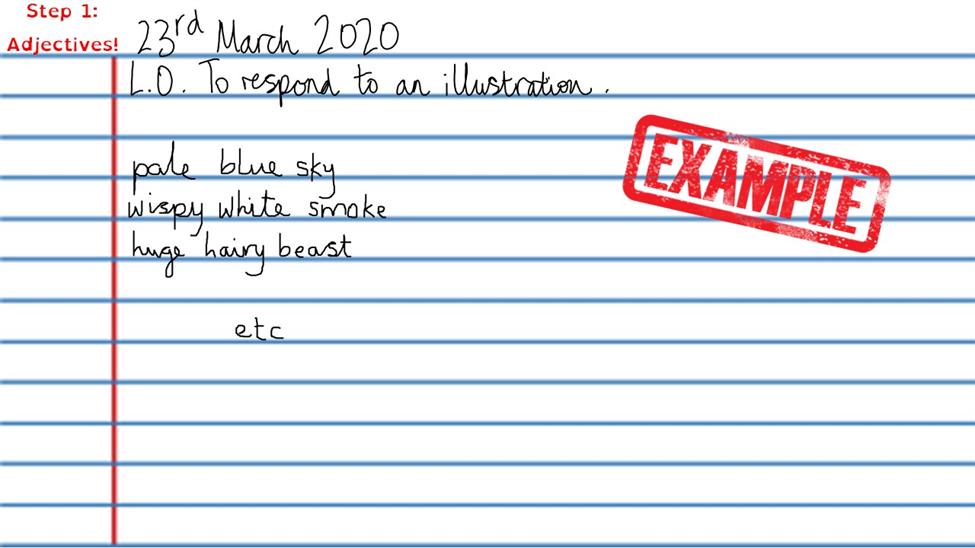 Step 1:
Adjectives!
23rd March 2020
L.O. To respond to an illustration.
pale blue sky
wispy white smoke
huge hairy beast
etc
EXAMPLE